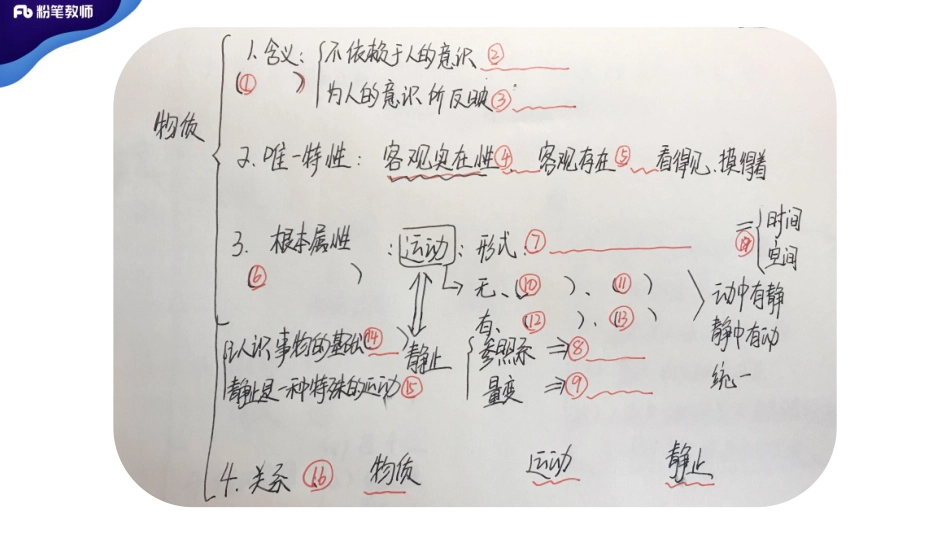 粉笔教师
物质
1. 含义: 不依赖于人的意识 ②
(① ) 为人的意识所反映 ③
2. 唯一特性: 客观实在性 ④ 客观存在 ⑤ 看得见、摸得着
3. 根本属性 : 运动 : 形式: ⑦ = 时间
(⑥ ) 空间
无、(⑩ )、(⑪ ) 动中有静
有、(⑫ )、(⑬ ) 静中有动
认识事物的基础 (⑭ ) 静止 参照系 ⇒ ⑧ 统一
静止是一种特殊的运动 ⑮ 量变 ⇒ ⑨
4. 关系 ⑯ 物质 运动 静止